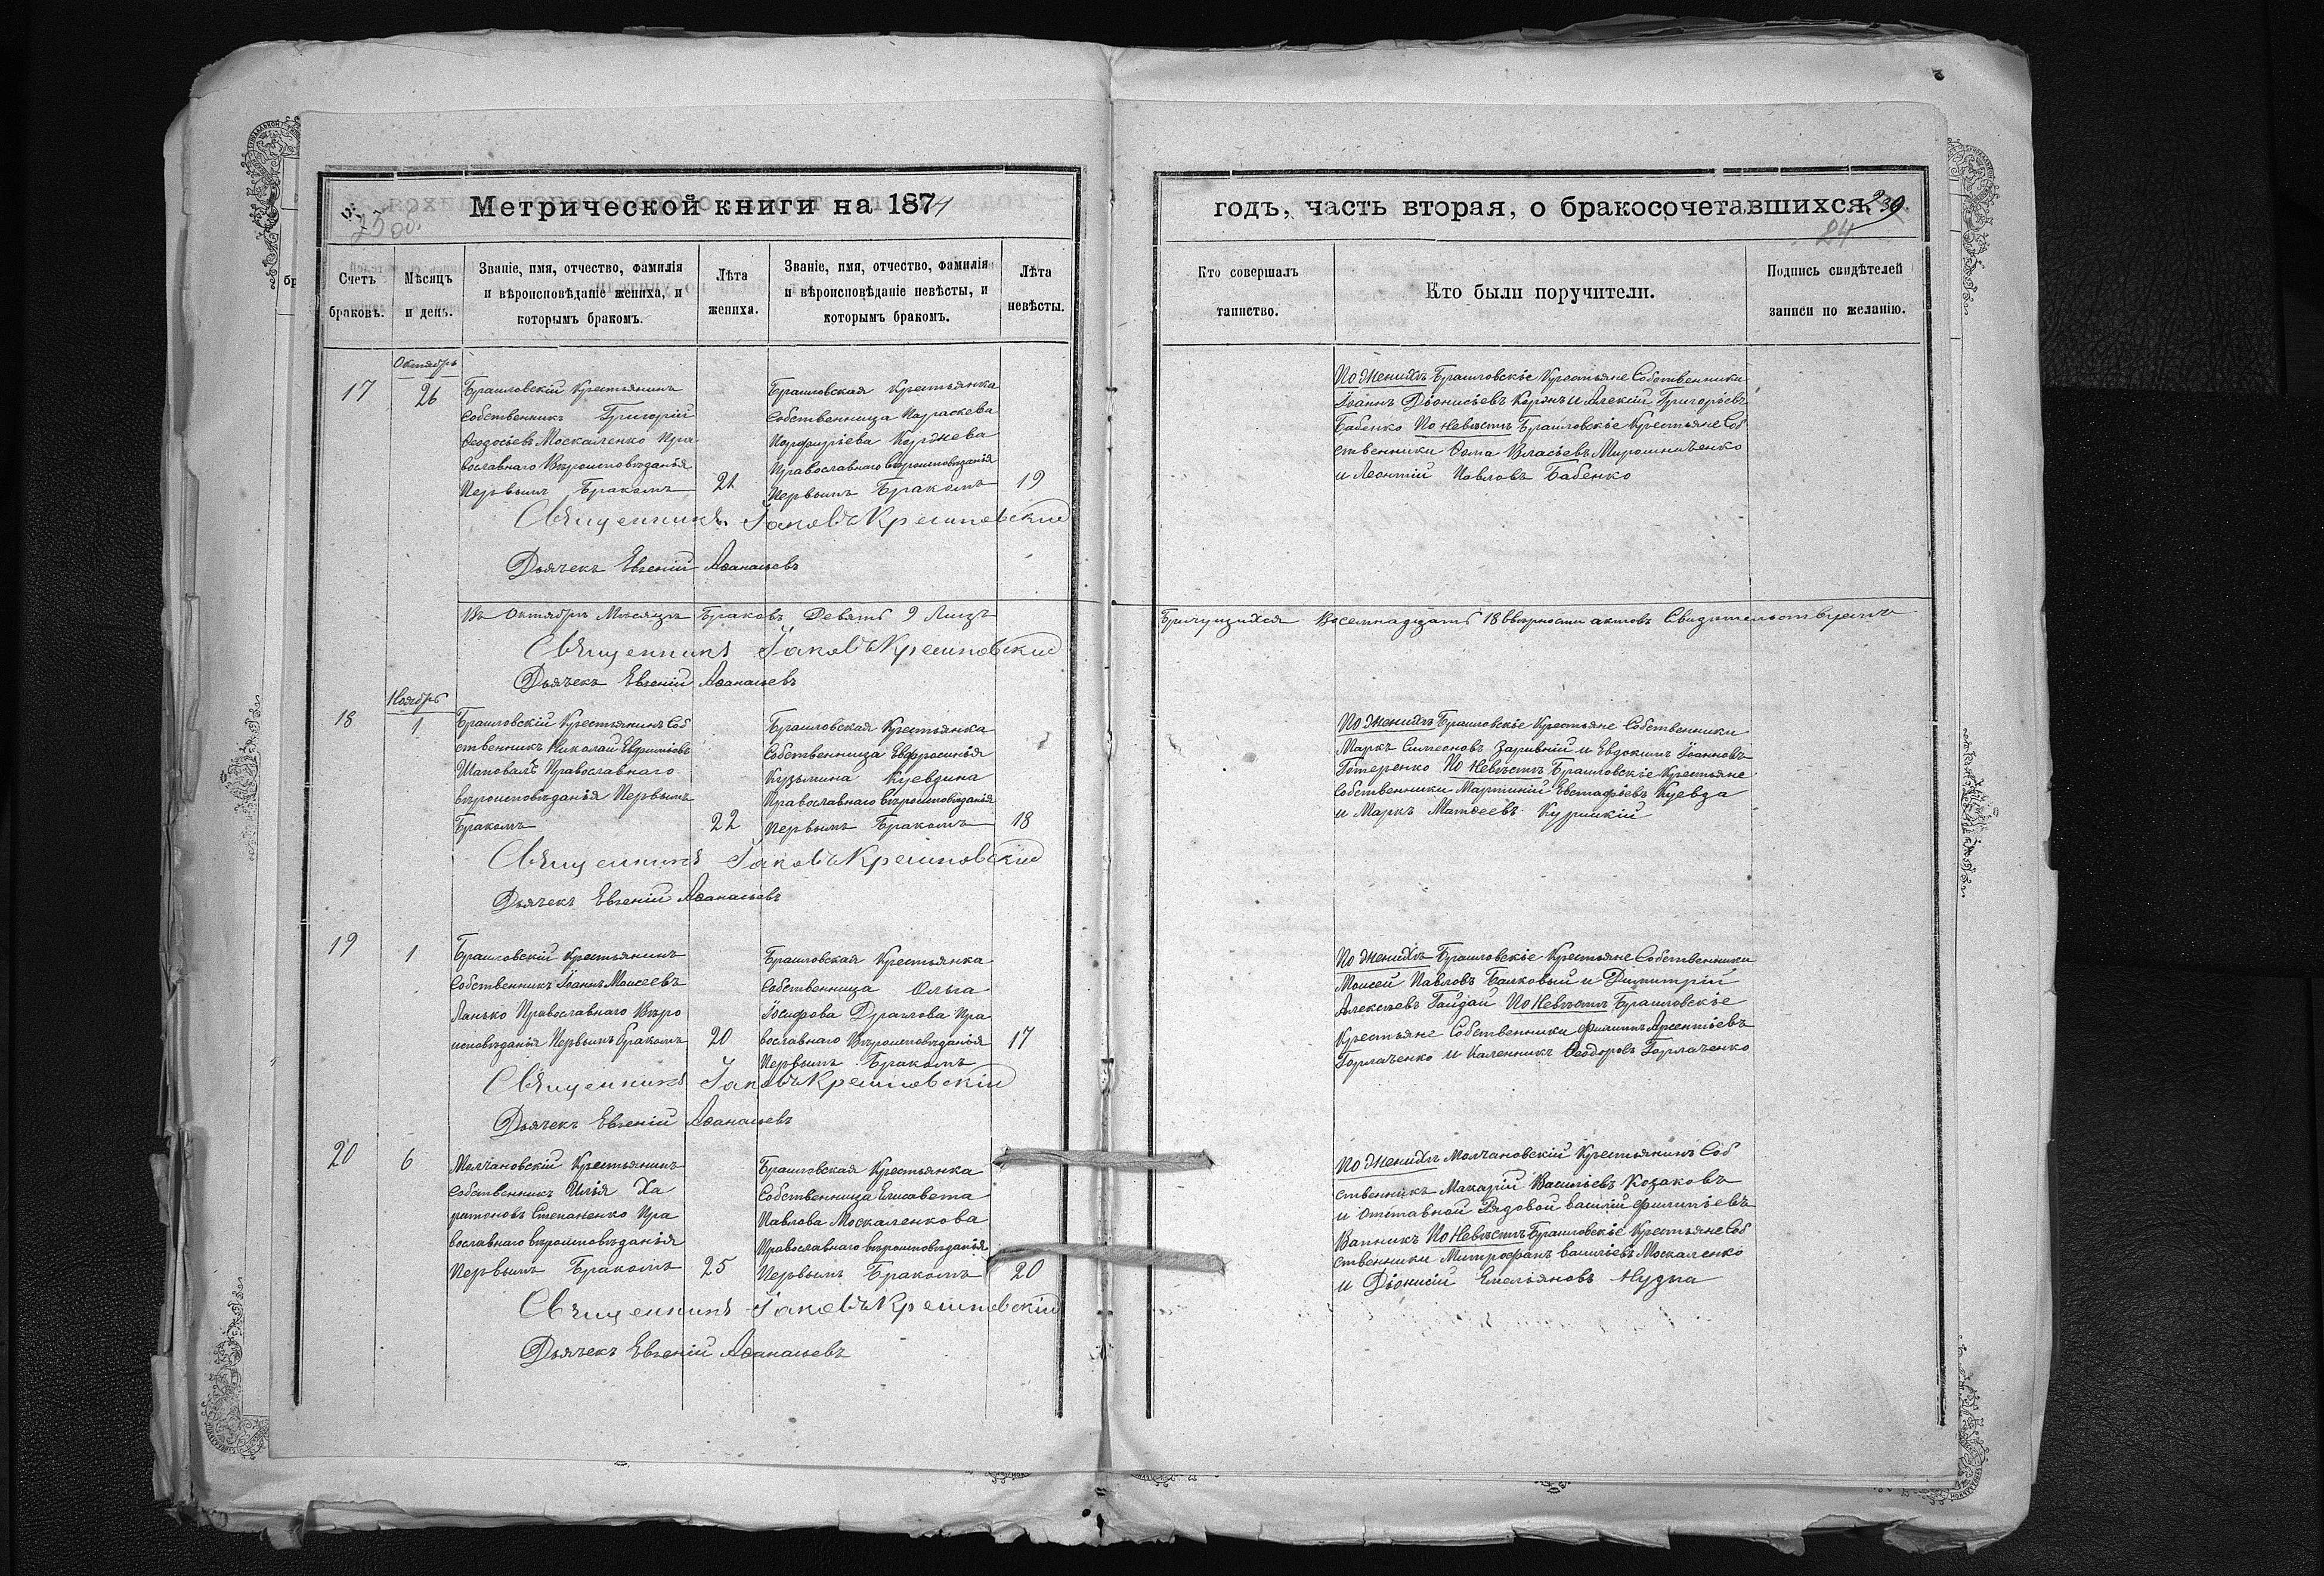 Метрической книги на 1874
годъ, часть вторая, о бракосочетавшихся.
23 об.
230.
24
Счетъ браковъ.
Мѣсяцъ и день.
Званіе, имя, отчество, фамилія и вѣроисповѣданіе жениха, и которымъ бракомъ.
Лѣта жениха.
Званіе, имя, отчество, фамилія и вѣроисповѣданіе невѣсты, и которымъ бракомъ.
Лѣта невѣсты.
Кто совершалъ таинство.
Кто были поручители.
Подпись свидѣтелей записи по желанію.
Октябрь
17
26
Браиловскій Крестьянинъ
Собственникъ Григорій
Ѳеодосьевъ Москаленко Пра
вославнаго Вѣроисповѣданія
Первымъ Бракомъ
21
Браиловская Крестьянка
Собственница Параскева
Порфиріева Коржева
Православнаго вѣроисповѣданія
Первымъ Бракомъ
19
По Женихѣ Браиловскіе Крестьяне Собственники
Іоаннъ Діонисіевъ Коржъ и Алексій Григоріевъ
Бабенко По Невѣстѣ Браиловскіе Крестьяне Соб
ственники Ѳома Власіевъ Мирошниченко
и Леонтій Павловъ Бабенко
Священникъ Іаковъ Крешновскій
Дьячекъ Евгеній Аѳанасьевъ
Въ Октябрѣ Мѣсяцѣ Браковъ Девять 9 Лицъ
Брачущихся Восемнадцать 18 Ввѣрности актовъ Свидѣтельствуемъ
Священникъ Іаковъ Крешновскій
Дьячекъ Евгеній Аѳанасьевъ
Ноябрь
18
1
Браиловскій Крестьянинъ Соб
ственникъ Николай Евфиміевъ
Шаповалъ Православнаго
вѣроисповѣданія Первымъ
Бракомъ
22
Браиловская Крестьянка
Собственница Евфросинія
Кузьмина Куевдина
Православнаго вѣроисповѣданія
Первымъ Бракомъ
18
По Женихѣ Браиловскіе Крестьяне Собственники
Маркъ Симеоновъ Заривній и Евдокимъ Іоанновъ
Гетеренко По Невѣстѣ Браиловскіе Крестьяне
Собственники Мартиній Евстафіевъ Куевда
и Маркъ Матѳеевъ Курицкій
Священникъ Іаковъ Крешновскій
Дьячекъ Евгеній Аѳанасьевъ
19
1
Браиловскій Крестьянинъ
Собственникъ Іоаннъ Моисеевъ
Ланько Православнаго Вѣро
исповѣданія Первымъ бракомъ
20
Браиловская Крестьянка
Собственница Ольга
Іосифова Драглова Пра
вославнаго Вѣроисповѣданія
Первымъ Бракомъ
17
По Женихѣ Браиловскіе Крестьяне Собственники
Моисей Павловъ Балковый и Димитрій
Алексѣевъ Гайдай По Невѣстѣ Браиловскіе
Крестьяне Собственники Филиппъ Арсентіевъ
Горлаченко и Каленникъ Ѳеодоровъ Горлаченко
Священникъ Іаковъ Крешновскій
Дьячекъ Евгеній Аѳанасьевъ
20
6
Молчановскій Крестьянинъ
Собственникъ Илія Ха
ритоновъ Степаненко Пра
вославнаго вѣроисповѣданія
Первымъ Бракомъ
25
Браиловская Крестьянка
Собственница Елисавета
Павлова Москаленкова
Православнаго вѣроисповѣданія
Первымъ Бракомъ
20
По Женихѣ Молчановскій Крестьянинъ Соб
ственникъ Макарій Васильевъ Козаковъ
и Отставной Рядовой василій Филиппіевъ
Вапникъ По Невѣстѣ Браиловскіе Крестьяне Соб
ственники Митрофанъ васильевъ Москаленко
и Діонисій Емельяновъ Нудга
Священникъ Іаковъ Крешновскій
Дьячекъ Евгеній Аѳанасьевъ